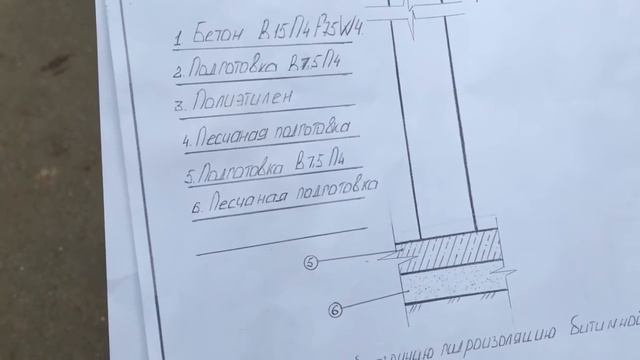 1 Бетон В15П4F75W4
2. Подготовка В7.5П4
3. Полиэтилен
4. Песчаная подготовка
5. Подготовка В7.5П4
6. Песчаная подготовка
5
6
гидроизоляцию битумной